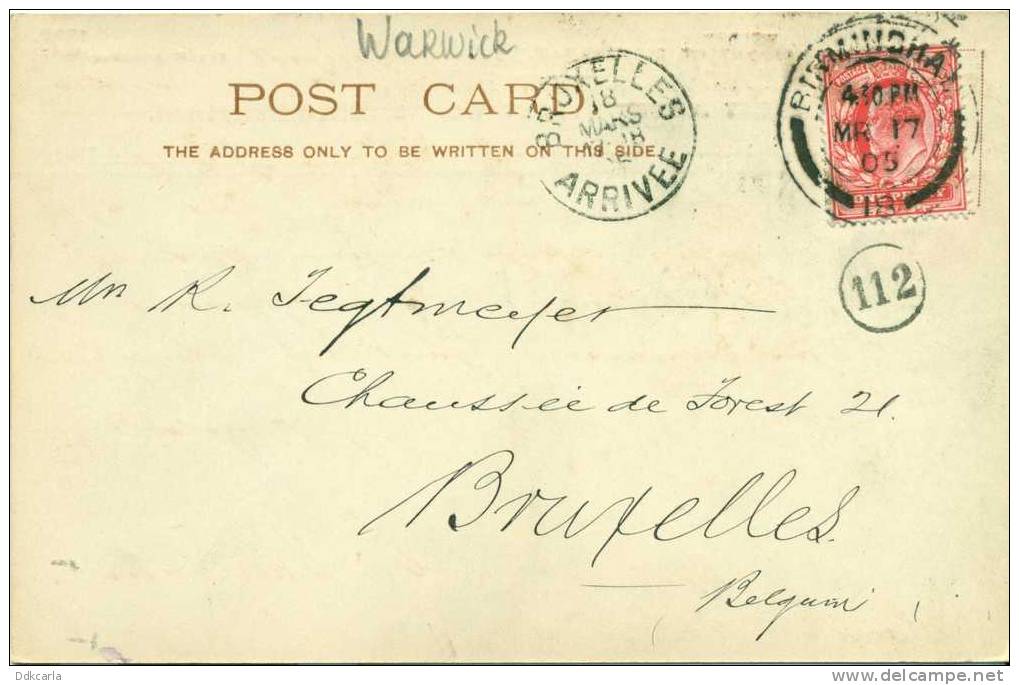 Warwick
POST CARD.
THE ADDRESS ONLY TO BE WRITTEN ON THIS SIDE.
BRUXELLES
18
MARS
ARRIVEE
BIRMINGHAM
4.30 PM
MR 17
05
18
POSTAGE
ONE PENNY
112
Mr R. Tegtmeyer
Chaussée de Forest 21.
Bruxelles.
Belgium
Ddkcarla
delcampe.net